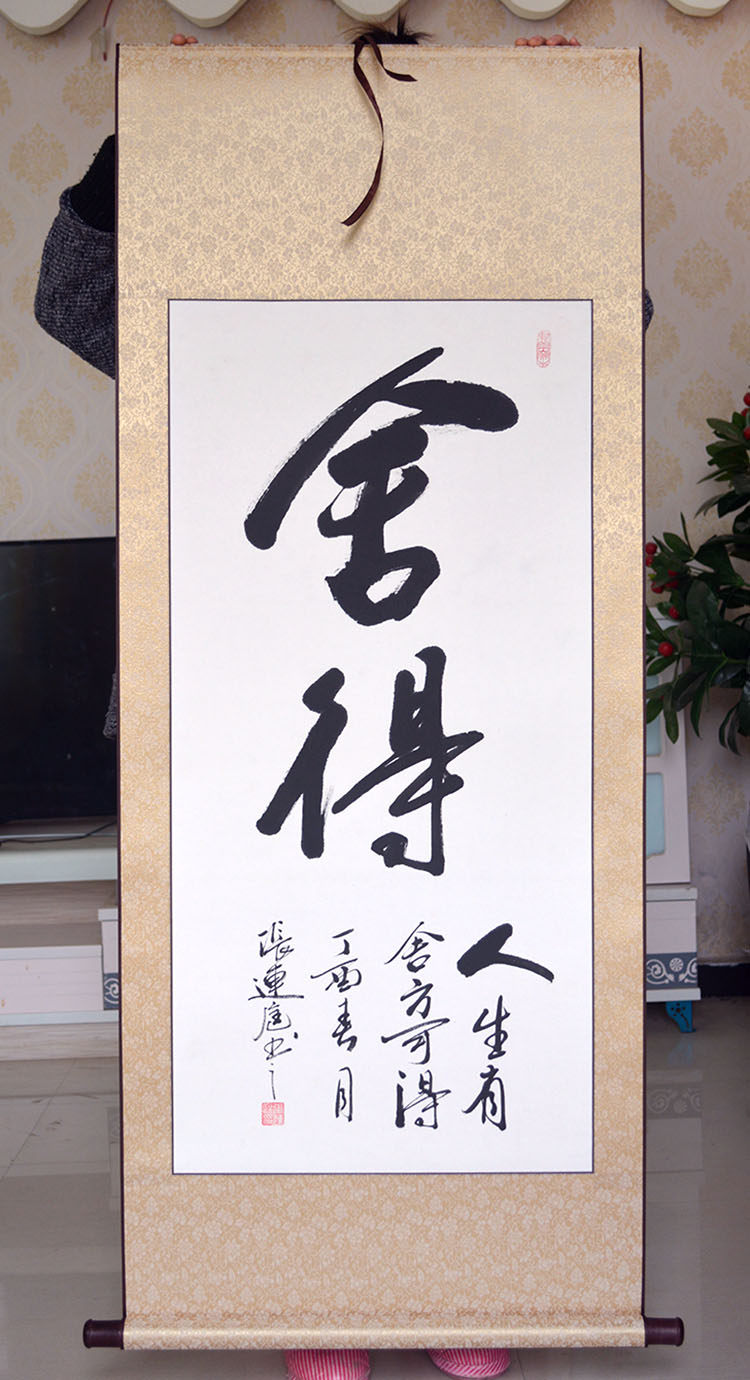 舍得
人生有
舍方可得
丁酉春月
張連庭书之